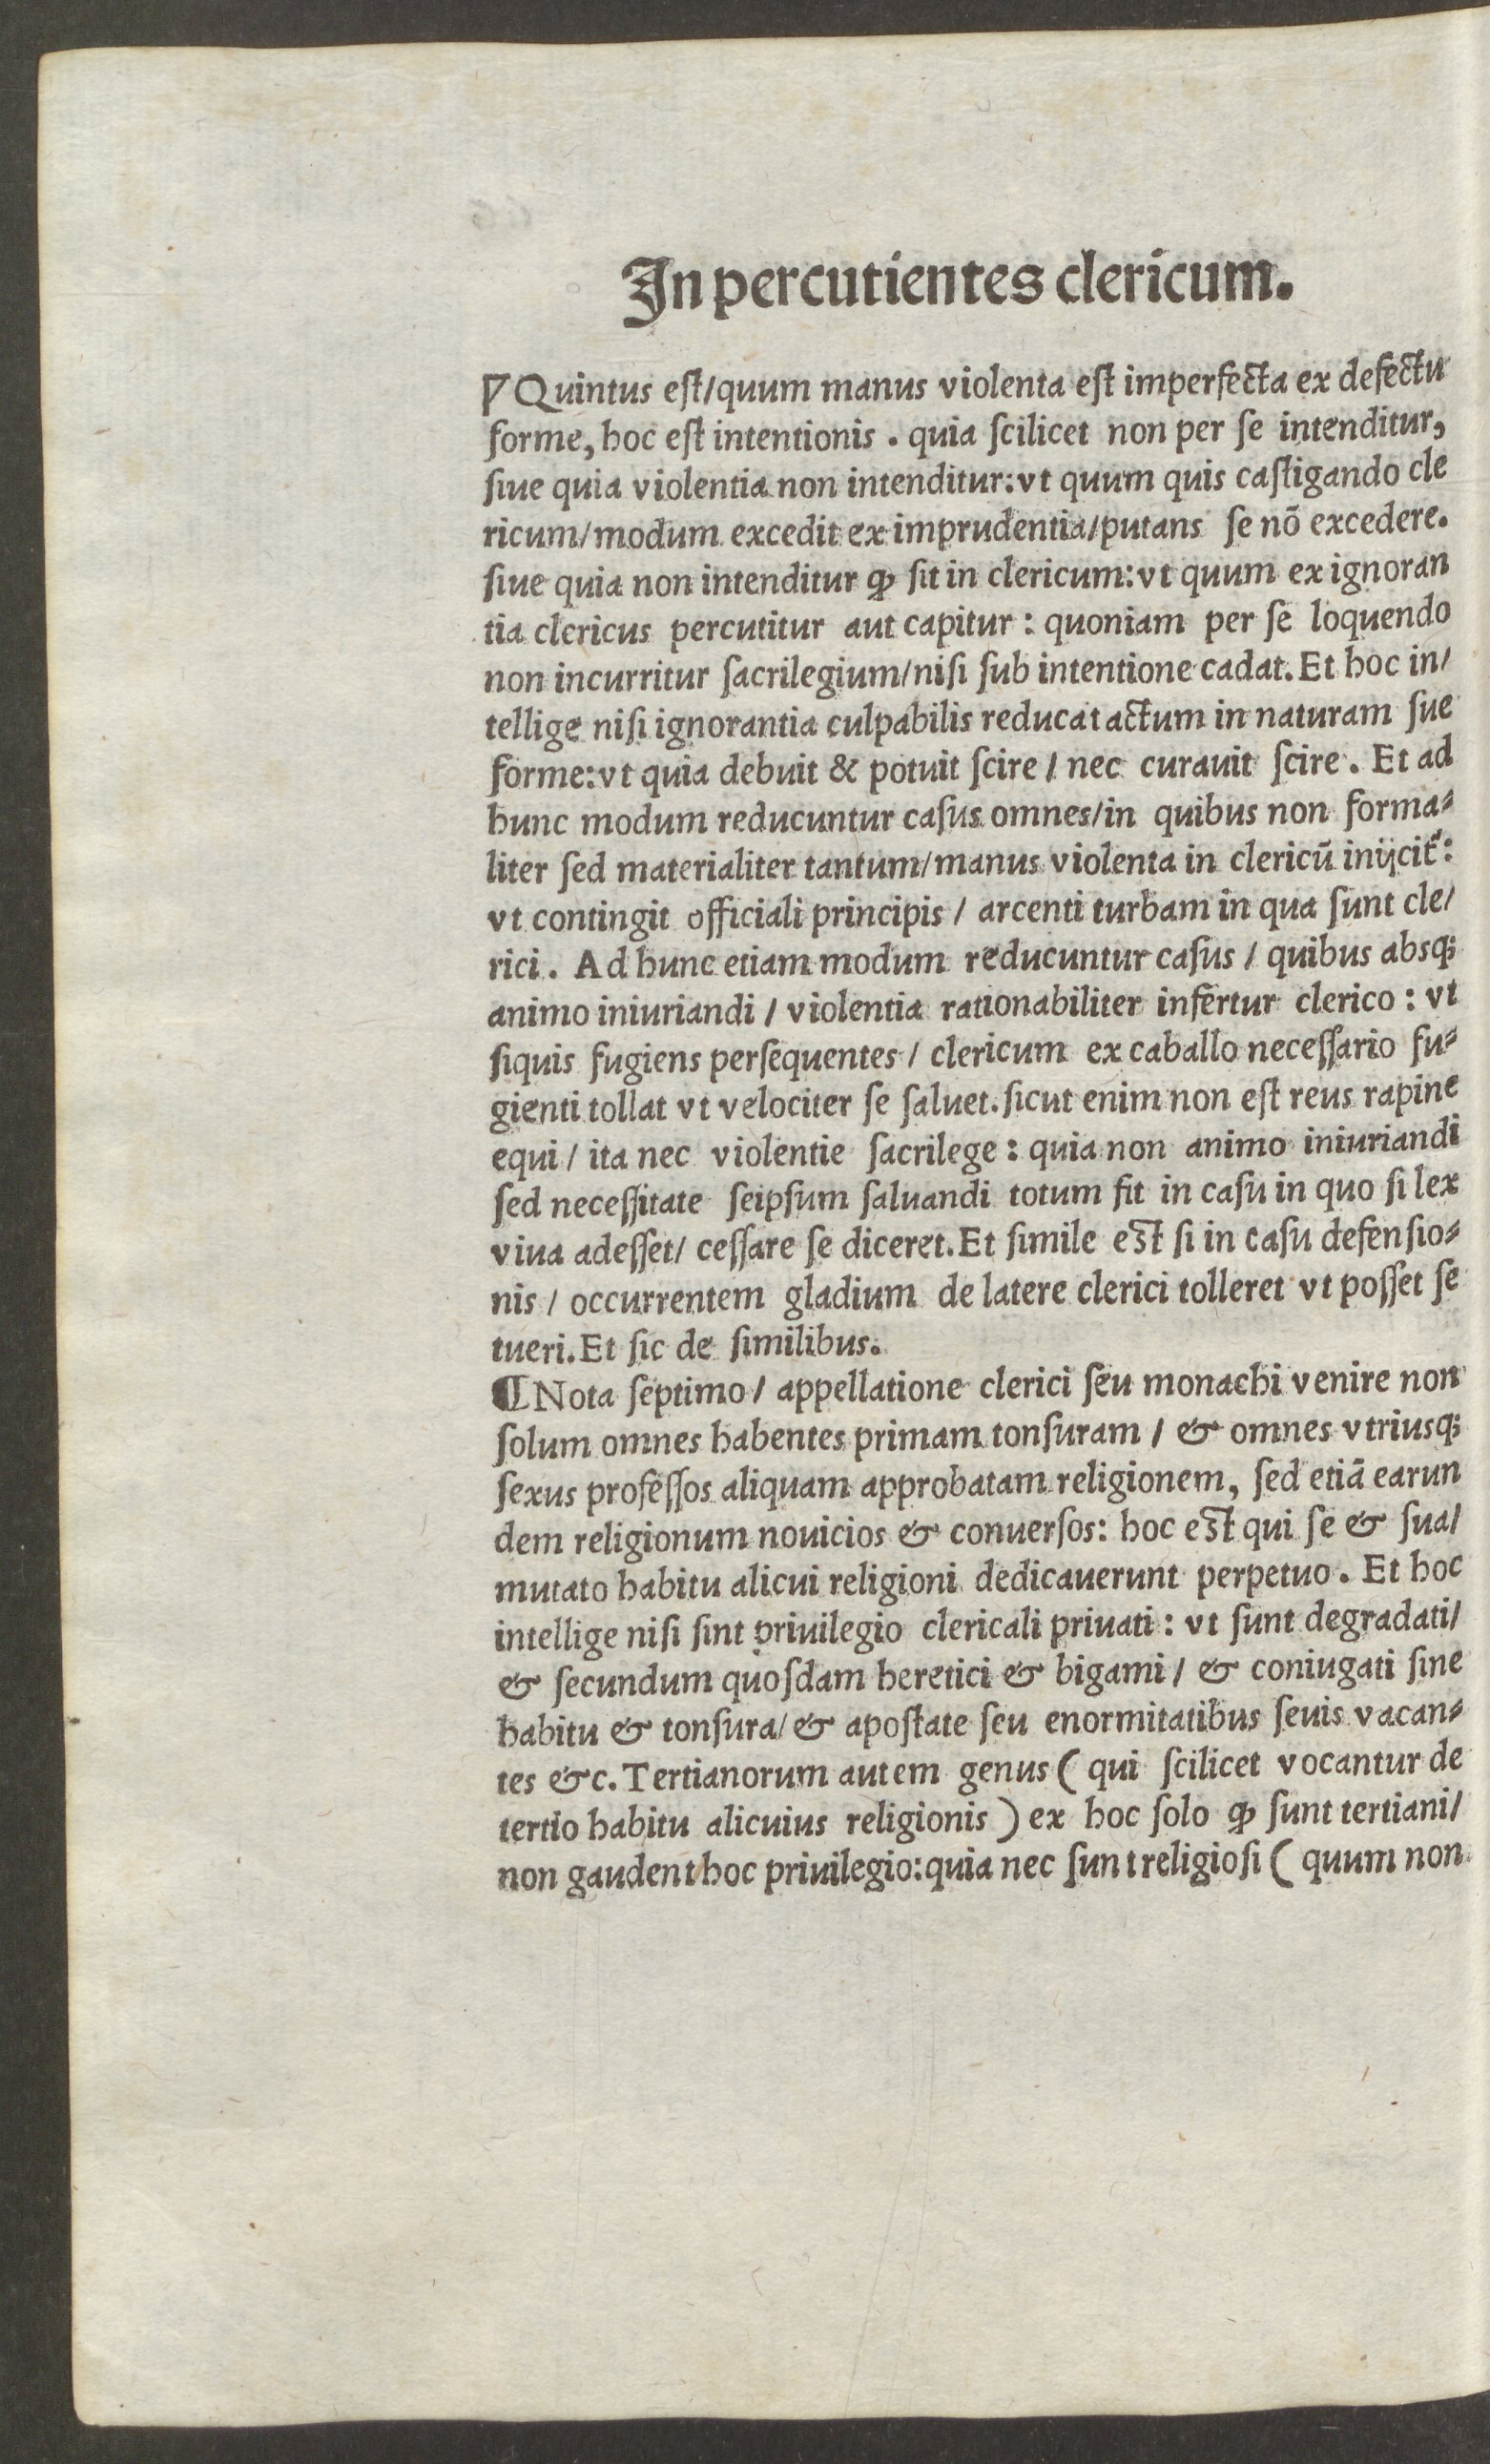 In percutientes clericum.
Quintus eſt/quum manus violenta eſt imperfecta ex defectu
forme, hoc eſt intentionis . quia ſcilicet non per ſe intenditur,
ſiue quia violentia non intenditur: vt quum quis caſtigando cle
ricum/modum excedit ex imprudentia/putans ſe nō excedere.
ſiue quia non intenditur ꝙ ſit in clericum: vt quum ex ignoran
tia clericus percutitur aut capitur : quoniam per ſe loquendo
non incurritur ſacrilegium/niſi ſub intentione cadat. Et hoc in/
tellige niſi ignorantia culpabilis reducat actum in naturam ſue
forme: vt quia debuit & potuit ſcire / nec curauit ſcire . Et ad
hunc modum reducuntur caſus omnes/in quibus non forma⸗
liter ſed materialiter tantum/manus violenta in clericū inijcit᷑:
vt contingit officiali principis / arcenti turbam in qua ſunt cle/
rici . Ad hunc etiam modum reducuntur caſus / quibus absqꝫ
animo iniuriandi / violentia rationabiliter infertur clerico : vt
ſiquis fugiens perſequentes / clericum ex caballo neceſſario fu⸗
gienti tollat vt velociter ſe ſaluet. ſicut enim non eſt reus rapine
equi / ita nec violentie ſacrilege : quia non animo iniuriandi
ſed neceſſitate ſeipſum ſaluandi totum fit in caſu in quo ſi lex
viua adeſſet/ ceſſare ſe diceret. Et ſimile eſt ſi in caſu defenſio⸗
nis / occurrentem gladium de latere clerici tolleret vt poſſet ſe
tueri. Et ſic de ſimilibus.
¶ Nota ſeptimo / appellatione clerici ſeu monachi venire non
ſolum omnes habentes primam tonſuram / & omnes vtriusqꝫ
ſexus profeſſos aliquam approbatam religionem, ſed etiā earun
dem religionum nouicios & conuerſos: hoc eſt qui ſe & ſua/
mutato habitu alicui religioni dedicauerunt perpetuo . Et hoc
intellige niſi ſint priuilegio clericali priuati : vt ſunt degradati/
& ſecundum quoſdam heretici & bigami / & coniugati ſine
habitu & tonſura/ & apoſtate ſeu enormitatibus ſeuis vacan⸗
tes &c. Tertianorum autem genus ( qui ſcilicet vocantur de
tertio habitu alicuius religionis ) ex hoc ſolo ꝙ ſunt tertiani/
non gaudent hoc priuilegio: quia nec ſunt religioſi ( quum non